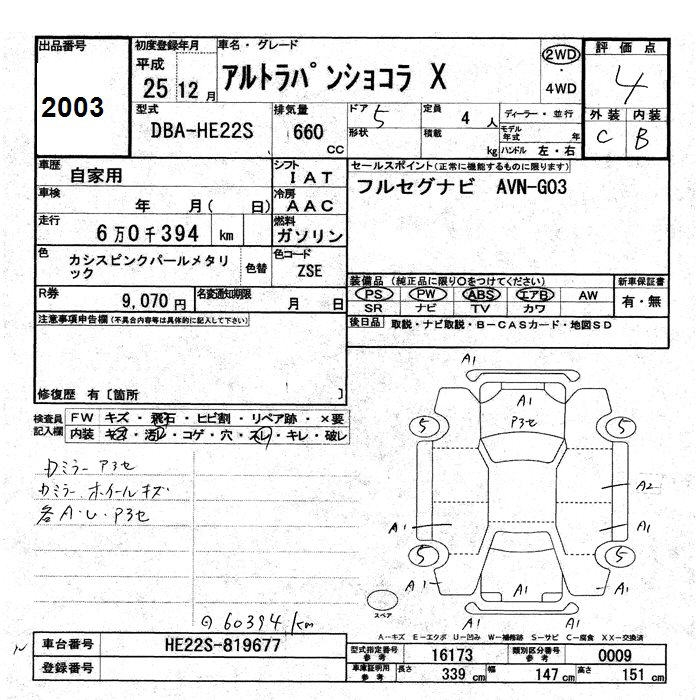 出品番号
2003
初度登録年月
平成
25 12月
車名・グレード
アルトラパンショコラ X
2WD
・
4WD
評価点
4
外装 内装
C B
型式
DBA-HE22S
排気量
660
CC
ドア 5
形状
定員 4 人
積載 kg
ディーラー・並行
モデル年式 年
ハンドル 左・右
車歴
自家用
シフト
IAT
車検
年 月( 日)
冷房
AAC
走行
6万0千394 km
燃料
ガソリン
色
カシスピンクパールメタリック
色替
色コード
ZSE
R券
9,070円
名変通知期限
月 日
セールスポイント(正常に機能するものに限ります)
フルセグナビ AVN-G03
装備品(純正品に限り○をつけてください)
PS PW ABS エアB AW
SR ナビ TV カワ
新車保証書
有・無
後日品 取説・ナビ取説・B-CASカード・地図SD
注意事項申告欄(不具合内容等は具体的に記入して下さい)
修復歴 有〔箇所 〕
検査員記入欄
FW キズ・飛石・ヒビ割・リペア跡・×要
内装 キズ・汚レ・コゲ・穴・スレ・キレ・破レ
カミラー P3セ
カミラー ホイールキズ
各A・U・P3セ
60394km
A1
A1
P3セ
5 5
A2
A1 A1
5 5
A1 A1 A1
スペア
A-キズ E-エクボ U-凹み W-補修跡 S-サビ C-腐食 XX-交換済
車台番号 HE22S-819677
登録番号
型式指定番号 参考 16173
類別区分番号 参考 0009
車庫証明用 参考 長さ 339 cm 幅 147 cm 高さ 151 cm